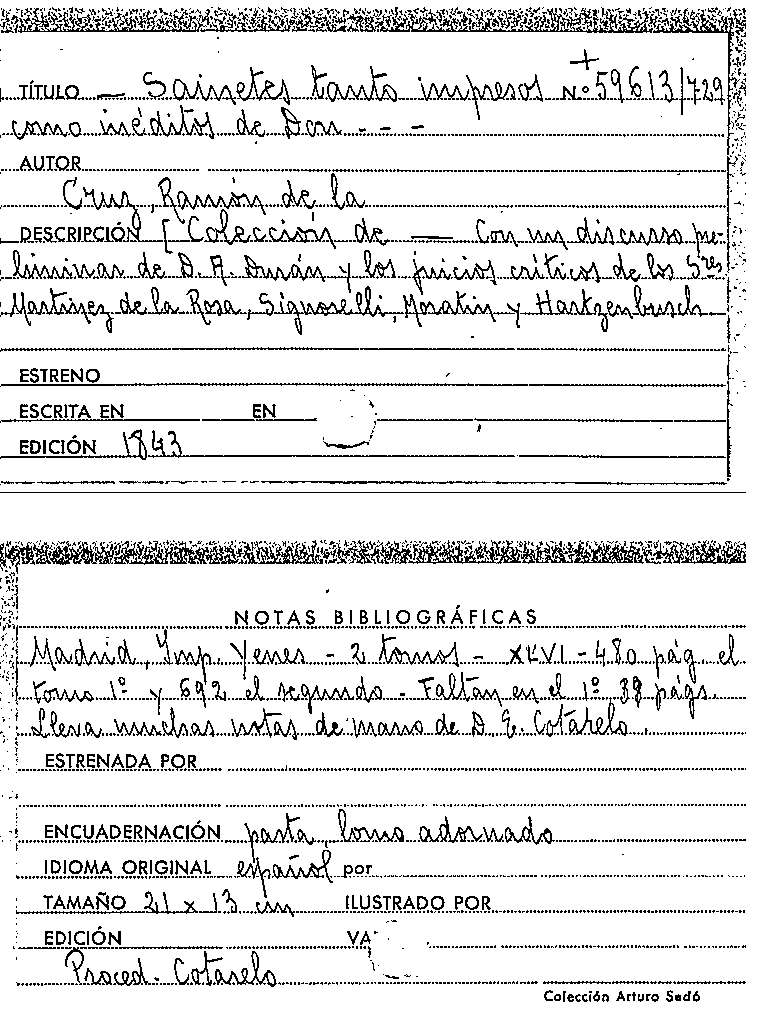 TÍTULO — Sainetes tanto impresos Nº 59613/729
como inéditos de Don - - -
AUTOR
Cruz, Ramón de la
DESCRIPCIÓN [Colección de — Con un discurso pre-
liminar de D. A. Durán y los juicios críticos de los Sres
Martínez de la Rosa, Signorelli, Moratín y Hartzenbusch
ESTRENO
ESCRITA EN EN
EDICIÓN 1843
NOTAS BIBLIOGRÁFICAS
Madrid, Imp. Yenes - 2 tomos - XLVI - 480 pág el
tomo 1º y 692 el segundo - Faltan en el 1º 38 págs.
Lleva muchas notas de mano de D. E. Cotarelo.
ESTRENADA POR
ENCUADERNACIÓN pasta, lomo adornado
IDIOMA ORIGINAL español por
TAMAÑO 21 x 13 cm ILUSTRADO POR
EDICIÓN VA
Proced. Cotarelo
Colección Arturo Sedó